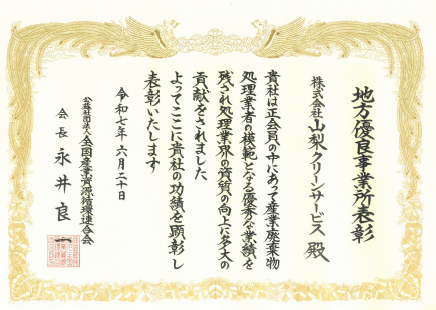 地方優良事業所表彰
株式会社山梨クリーンサービス 殿
貴社は正会員の中にあって産業廃棄物
処理業者の模範となる優秀な業績を
残され処理業界の資質の向上に多大の
貢献をされました
よってここに貴社の功績を顕彰し
表彰いたします
令和七年六月二十日
公益社団法人全国産業資源循環連合会
会長 永井良一